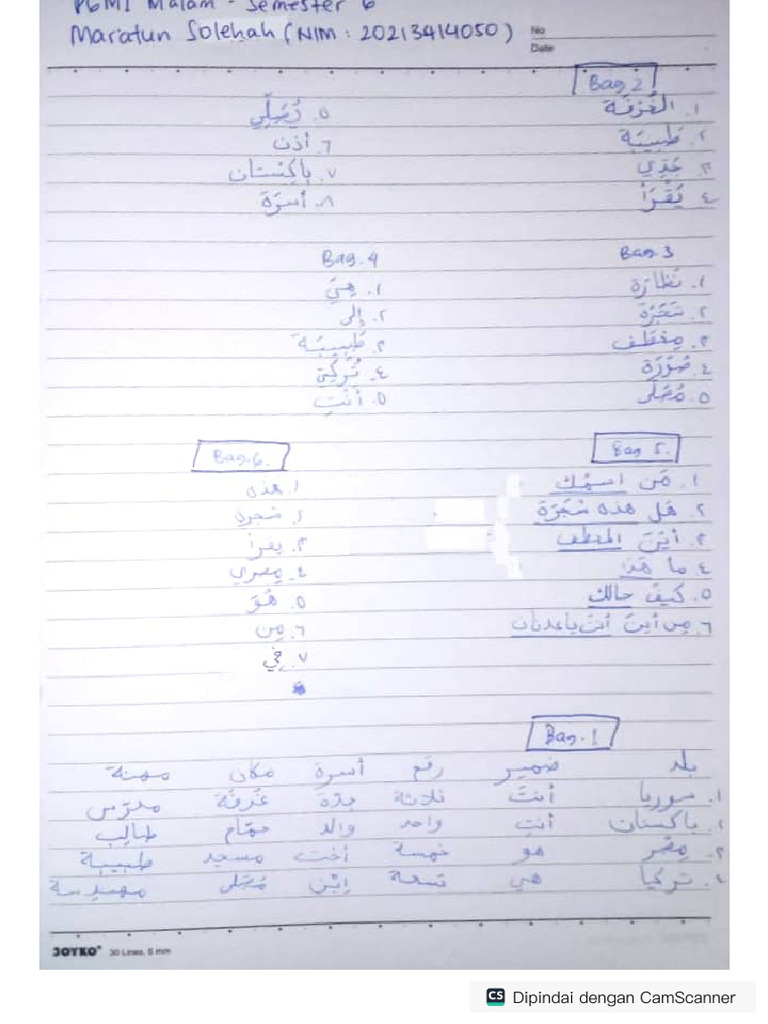 PGMI Malam - Semester 6
Mariatun Solehah (NIM : 20213414050)
No
Date
Bag 2
١. الغُرْفَة
٢. طَبِيبَة
٣. جَدِي
٤. يَقْرَأ
٥. يُصَلِّي
٦. أذن
٧. باكِسْتان
٨. أسْرَة
Bag 3
١. نَظارَة
٢. شَجَرَة
٣. مِعْطَف
٤. صُوْرَة
٥. مُصَلى
Bag. 4
١. هِيَ
٢. إلى
٣. طَبِيبَة
٤. تُرْكِيّ
٥. أنْتِ
Bag 5.
١. مَن اسمُك
٢. هَل هذه شَجَرَة
٣. أيْنَ المعطف
٤. ما هَذا
٥. كيفَ حالك
٦. مِن أينَ أنتَ ياعدنان
Bag. 6.
١. هذه
٢. شجرة
٣. يقرأ
٤. مِصري
٥. هُوَ
٦. مِن
٧. في
Bag. 1
بلد ضمير رقم أسرة مكان مهنة
١. سوريا أنتَ ثلاثة جدّة غُرفَة مدرّس
٢. باكستان أنتِ واحد والد حمّام طالب
٣. مِصْر هو خمسة أخت مسجد طبيبة
٤. تركيا هي تسعة إبْن مُصَلى مهندسة
JOYKO 30 Lines, 8 mm
CS Dipindai dengan CamScanner